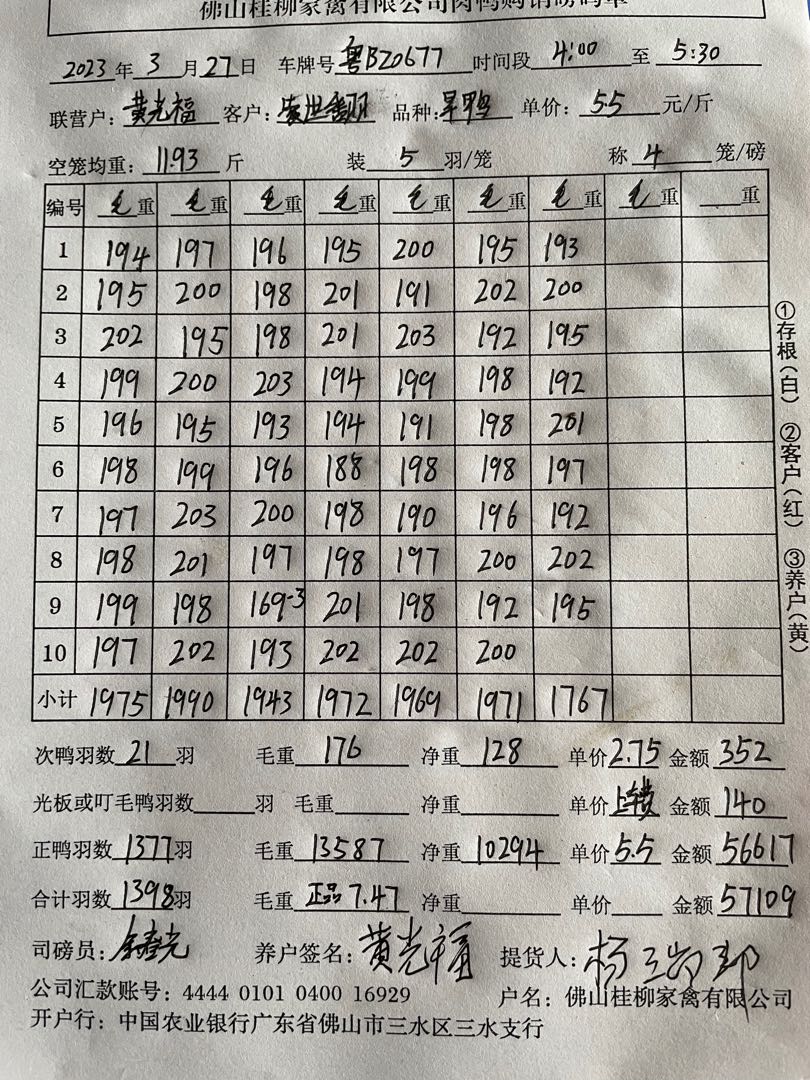 佛山桂柳家禽有限公司肉鸭购销磅码单
2023年3月27日 车牌号粤BZ0677 时间段4:00至5:30
联营户:黄光福 客户: 品种:旱鸭 单价:5.5元/斤
空笼均重:11.93斤 装5羽/笼 称4笼/磅
编号 毛重 毛重 毛重 毛重 毛重 毛重 毛重 毛重 重
1 194 197 196 195 200 195 193
2 195 200 198 201 191 202 200
3 202 195 198 201 203 192 195
4 199 200 203 194 199 198 192
5 196 195 193 194 191 198 201
6 198 199 196 188 198 198 197
7 197 203 200 198 190 196 192
8 198 201 197 198 197 200 202
9 199 198 169-3 201 198 192 195
10 197 202 193 202 202 200
小计 1975 1990 1943 1972 1969 1971 1767
次鸭羽数21羽 毛重176 净重128 单价2.75 金额352
光板或叮毛鸭羽数 羽 毛重 净重 单价 金额140
正鸭羽数1377羽 毛重13587 净重10294 单价5.5 金额56617
合计羽数1398羽 毛重正品7.47 净重 单价 金额57109
司磅员: 养户签名:黄光福 提货人:
公司汇款账号:4444 0101 0400 16929 户名:佛山桂柳家禽有限公司
开户行:中国农业银行广东省佛山市三水区三水支行
①存根(白) ②客户(红) ③养户(黄)